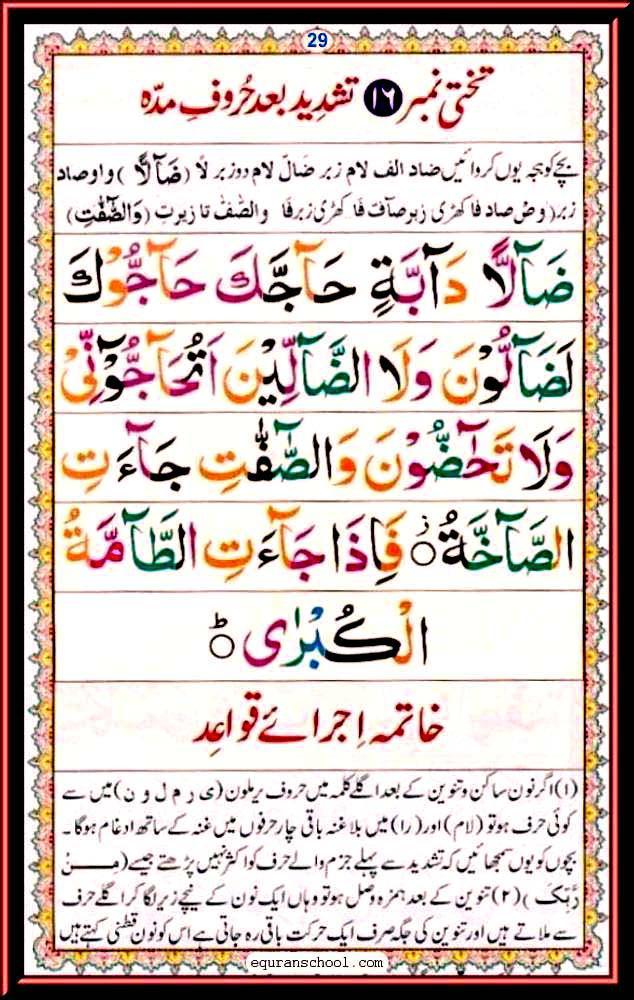 29
تختی نمبر ۱۶ تشدید بعد حُروفِ مدّہ
بچے کو ہجہ یوں کروائیں ضاد الف لام زبر ضَالّ لام دو زبر لاً (ضَآلًّا) واو صاد
زبر (وصّ صاد فا کھڑی زبر صآفّ فَا کھڑی زبر فَا والصّٰٓفّٰ تا زیر تِ (وَالصّٰٓفّٰتِ)
ضَآلًّا دَآبَّةٍ حَآجَّكَ حَآجُّوْكَ
لَضَآلُّوْنَ وَلَا الضَّآلِّيْنَ اَتُحَآجُّوْٓنِّيْ
وَلَا تَحٰٓضُّوْنَ وَالصّٰٓفّٰتِ جَآءَتِ
الصَّآخَّةُ ز فَاِذَا جَآءَتِ الطَّآمَّةُ
الْكُبْرٰى ط
خاتمہ اِجرائے قواعِد
(۱) اگر نون ساکن و تنوین کے بعد اگلے کلمہ میں حروف یرملون (ی ر م ل و ن) میں سے
کوئی حرف ہو تو (لام) اور (را) میں بلا غنہ باقی چار حرفوں میں غنہ کے ساتھ ادغام ہوگا۔
بچوں کو یوں سمجھائیں کہ تشدید سے پہلے جزم والے حرف کو اکثر نہیں پڑھتے جیسے (مِنْ
رَّبِّکَ) (۲) تنوین کے بعد ہمزہ وصل ہو تو وہاں ایک نون کے نیچے زیر لگا کر اگلے حرف
سے ملاتے ہیں اور تنوین کی جگہ صرف ایک حرکت باقی رہ جاتی ہے اس کو نون قطنی کہتے ہیں
equranschool.com